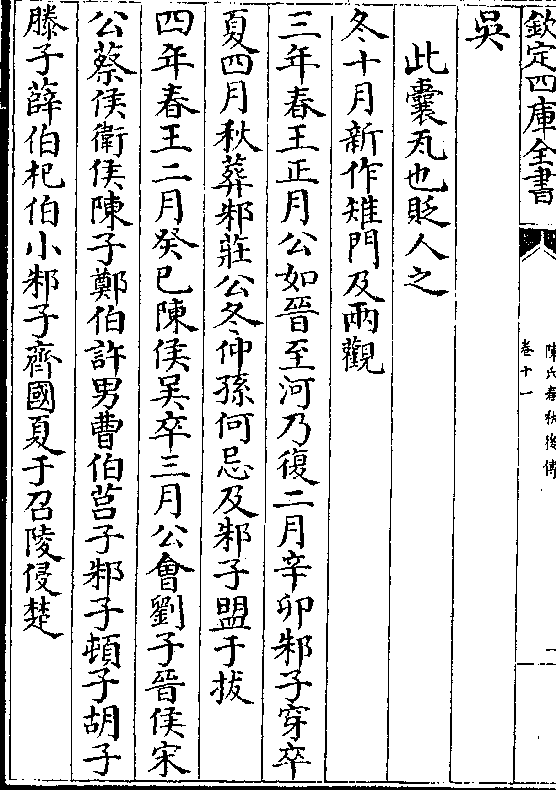 欽定四庫全書
陳氏春秋後傳
卷十一
一
吳
此囊瓦也貶人之
冬十月新作雉門及兩觀
三年春王正月公如晉至河乃復二月辛卯邾子穿卒
夏四月秋葬邾莊公冬仲孫何忌及邾子盟于拔
四年春王二月癸巳陳侯吳卒三月公會劉子晉侯宋
公蔡侯衛侯陳子鄭伯許男曹伯莒子邾子頓子胡子
滕子薛伯杞伯小邾子齊國夏于召陵侵楚